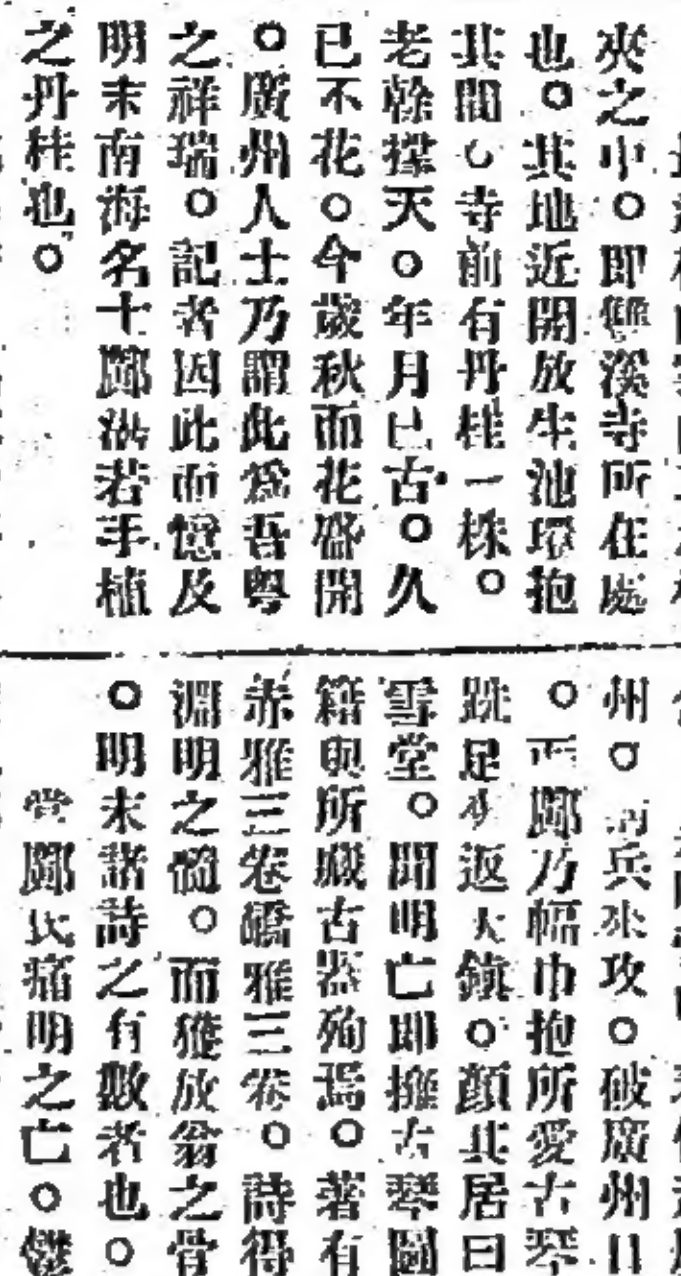 夾之中。即雙溪寺所在處
也。其地近開放生池環抱
其間。寺前有丹桂一株。
老幹撐天。年月已古。久
已不花。今歲秋而花盛開
。廣州人士乃謂此爲吾粵
之祥瑞。記者因此而憶及
明末南海名士鄺湛若手植
之丹桂也。
州。清兵來攻。破廣州日
。而鄺乃幅巾抱所愛古琴
跣足 返 鎮。顏其居曰
雪堂。聞明亡即擁古琴圖
籍與所藏古器殉焉。著有
赤雅三卷嶠雅三卷。詩得
淵明之髓。而獲放翁之骨
。明末諸詩之有數者也。
當鄺氏痛明之亡。